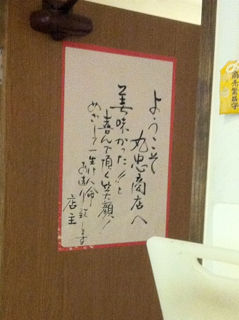 ようこそ
丸忠商店へ
美味かった!!と
喜んで頂く笑顔!
めざして一生けん命
お造り致します
店主
商売繁昌守